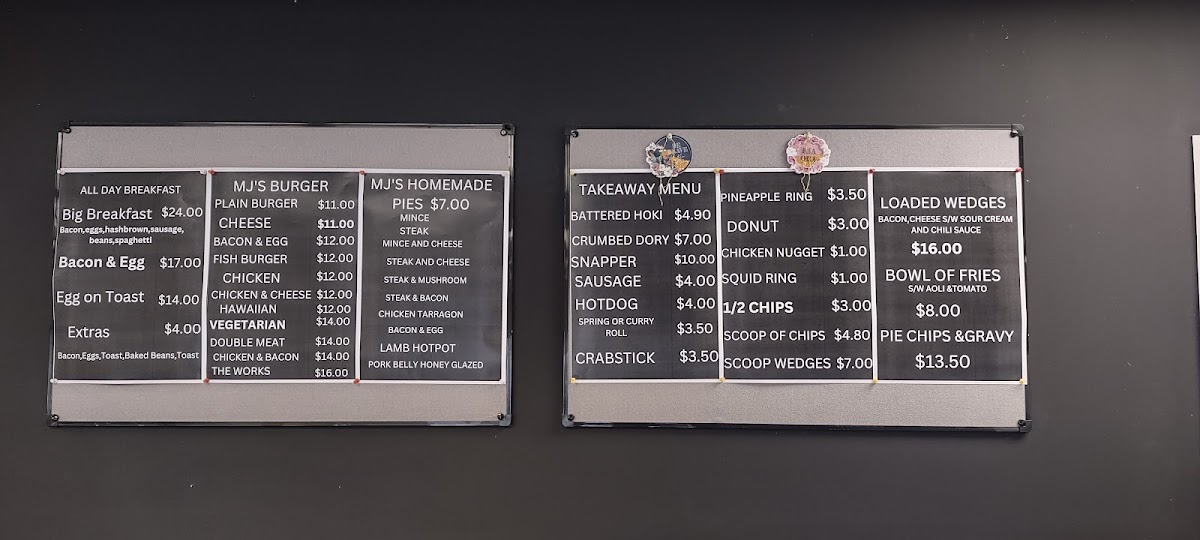 ALL DAY BREAKFAST
Big Breakfast $24.00
Bacon,eggs,hashbrown,sausage,
beans,spaghetti
Bacon & Egg $17.00
Egg on Toast $14.00
Extras $4.00
Bacon,Eggs,Toast,Baked Beans,Toast
MJ'S BURGER
PLAIN BURGER $11.00
CHEESE $11.00
BACON & EGG $12.00
FISH BURGER $12.00
CHICKEN $12.00
CHICKEN & CHEESE $12.00
HAWAIIAN $12.00
VEGETARIAN $14.00
DOUBLE MEAT $14.00
CHICKEN & BACON $14.00
THE WORKS $16.00
MJ'S HOMEMADE
PIES $7.00
MINCE
STEAK
MINCE AND CHEESE
STEAK AND CHEESE
STEAK & MUSHROOM
STEAK & BACON
CHICKEN TARRAGON
BACON & EGG
LAMB HOTPOT
PORK BELLY HONEY GLAZED
TAKEAWAY MENU
BATTERED HOKI $4.90
CRUMBED DORY $7.00
SNAPPER $10.00
SAUSAGE $4.00
HOTDOG $4.00
SPRING OR CURRY
ROLL $3.50
CRABSTICK $3.50
PINEAPPLE RING $3.50
DONUT $3.00
CHICKEN NUGGET $1.00
SQUID RING $1.00
1/2 CHIPS $3.00
SCOOP OF CHIPS $4.80
SCOOP WEDGES $7.00
LOADED WEDGES
BACON,CHEESE S/W SOUR CREAM
AND CHILI SAUCE
$16.00
BOWL OF FRIES
S/W AOLI &TOMATO
$8.00
PIE CHIPS &GRAVY
$13.50